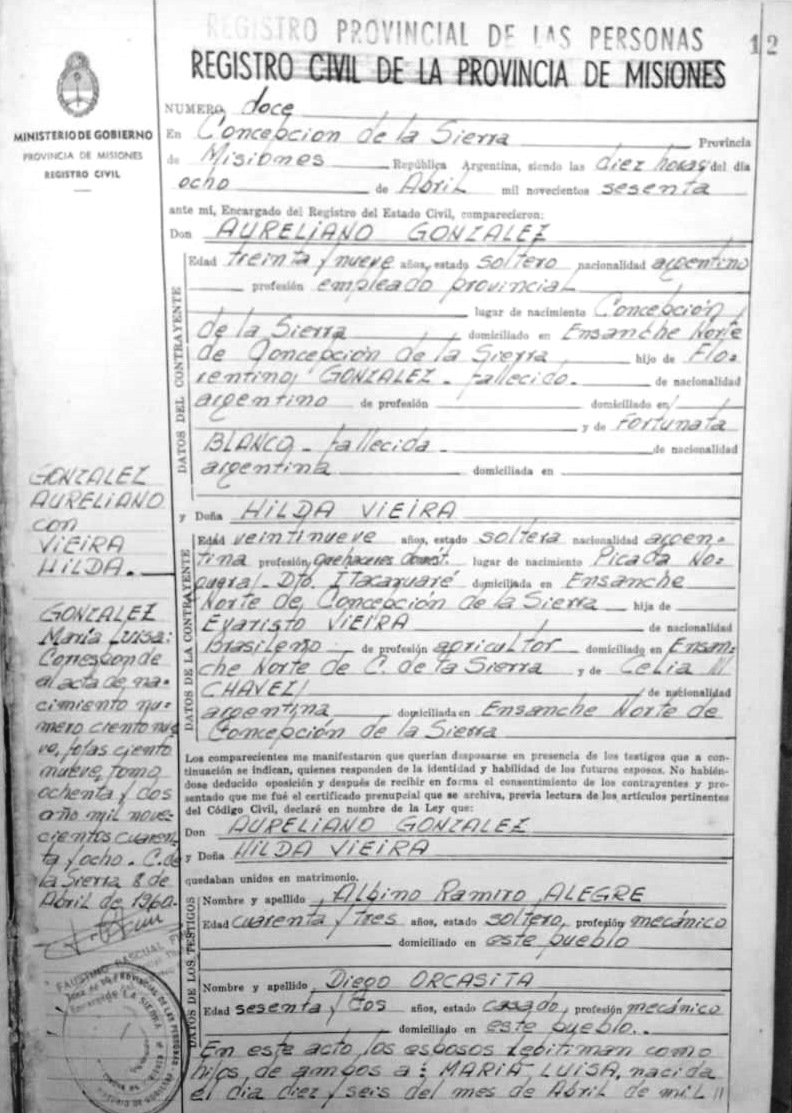 REGISTRO PROVINCIAL DE LAS PERSONAS
12
REGISTRO CIVIL DE LA PROVINCIA DE MISIONES
MINISTERIO DE GOBIERNO
PROVINCIA DE MISIONES
REGISTRO CIVIL
NUMERO doce
En Concepcion de la Sierra Provincia
de Misiones República Argentina, siendo las diez horas del día
ocho de Abril mil novecientos sesenta
ante mí, Encargado del Registro del Estado Civil, comparecieron:
Don AURELIANO GONZALEZ
DATOS DEL CONTRAYENTE
Edad treinta y nueve años, estado soltero nacionalidad argentino
profesión empleado provincial
lugar de nacimiento Concepción
de la Sierra domiciliado en Ensanche Norte
de Concepción de la Sierra hijo de Flo=
rentino GONZALEZ - fallecido. de nacionalidad
argentino de profesión domiciliado en
y de Fortunata
BLANCO - fallecida de nacionalidad
argentina domiciliada en
y Doña HILDA VIEIRA
DATOS DE LA CONTRAYENTE
Edad veintinueve años, estado soltera nacionalidad argen=
tina profesión quehaceres domést. lugar de nacimiento Picada
Dto. Itacaruaré domiciliada en Ensanche
Norte de Concepción de la Sierra hija de
Evaristo VIEIRA de nacionalidad
Brasileño de profesión agricultor domiciliado en Ensan=
che Norte de C. de la Sierra y de Celia
CHAVEZ de nacionalidad
argentina domiciliada en Ensanche Norte de
Concepción de la Sierra
Los comparecientes me manifestaron que querían desposarse en presencia de los testigos que a con-
tinuación se indican, quienes responden de la identidad y habilidad de los futuros esposos. No habién-
dose deducido oposición y después de recibir en forma el consentimiento de los contrayentes y pre-
sentado que me fué el certificado prenupcial que se archiva, previa lectura de los artículos pertinentes
del Código Civil, declaré en nombre de la Ley que:
Don AURELIANO GONZALEZ
y Doña HILDA VIEIRA
quedaban unidos en matrimonio.
DATOS DE LOS TESTIGOS
Nombre y apellido Albino Ramiro ALEGRE
Edad cuarenta y tres años, estado soltero, profesión mecánico
domiciliado en este pueblo
Nombre y apellido Diego ORCASITA
Edad sesenta y dos años, estado casado, profesión mecánico
domiciliado en este pueblo..
En este acto los esposos legitiman como
hijos de ambos a: MARIA LUISA, nacida
el día diez y seis del mes de Abril de mil
GONZALEZ
AURELIANO
con
VIEIRA
HILDA.
GONZALEZ
María Luisa:
Corresponde
al acta de na=
cimiento nu=
mero ciento nue
ve, fojas ciento
nueve, tomo
ochenta y dos
año mil nove=
cientos cuaren
ta y ocho. C. de
la Sierra 8 de
Abril de 1960.
FAUSTINO PASCUAL